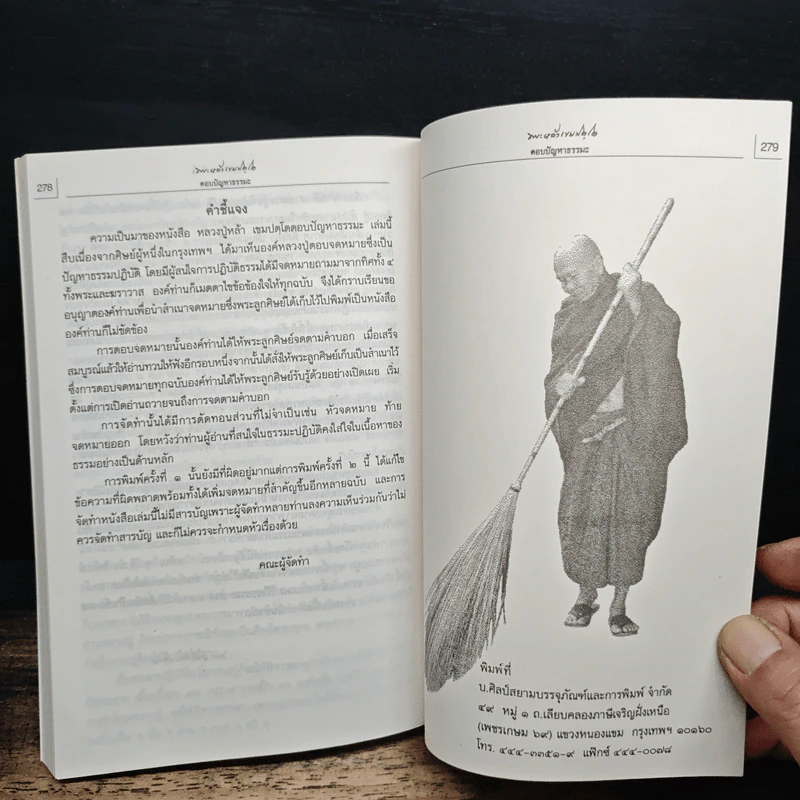 278
พระหล้า เขมปตฺโต
ตอบปัญหาธรรมะ
คำชี้แจง
ความเป็นมาของหนังสือ หลวงปู่หล้า เขมปตฺโตตอบปัญหาธรรมะ เล่มนี้
สืบเนื่องจากศิษย์ผู้หนึ่งในกรุงเทพฯ ได้มาเห็นองค์หลวงปู่ตอบจดหมายซึ่งเป็น
ปัญหาธรรมปฏิบัติ โดยมีผู้สนใจการปฏิบัติธรรมได้มีจดหมายถามมาจากทิศทั้ง ๔
ทั้งพระและฆราวาส องค์ท่านก็เมตตาไขข้อข้องใจให้ทุกฉบับ จึงได้กราบเรียนขอ
อนุญาตองค์ท่านเพื่อนำสำเนาจดหมายซึ่งพระลูกศิษย์ได้เก็บไว้ไปพิมพ์เป็นหนังสือ
องค์ท่านก็ไม่ขัดข้อง
การตอบจดหมายนั้นองค์ท่านได้ให้พระลูกศิษย์จดตามคำบอก เมื่อเสร็จ
สมบูรณ์แล้วให้อ่านทวนให้ฟังอีกรอบหนึ่งจากนั้นได้สั่งให้พระลูกศิษย์เก็บเป็นสำเนาไว้
ซึ่งการตอบจดหมายทุกฉบับองค์ท่านได้ให้พระลูกศิษย์รับรู้ด้วยอย่างเปิดเผย เริ่ม
ตั้งแต่การเปิดอ่านถวายจนถึงการจดตามคำบอก
การจัดทำนั้นได้มีการตัดทอนส่วนที่ไม่จำเป็นเช่น หัวจดหมาย ท้าย
จดหมายออก โดยหวังว่าท่านผู้อ่านที่สนใจในธรรมะปฏิบัติคงใส่ใจในเนื้อหาของ
ธรรมอย่างเป็นด้านหลัก
การพิมพ์ครั้งที่ ๑ นั้นยังมีที่ผิดอยู่มากแต่การพิมพ์ครั้งที่ ๒ นี้ ได้แก้ไข
ข้อความที่ผิดพลาดพร้อมทั้งได้เพิ่มจดหมายที่สำคัญขึ้นอีกหลายฉบับ และการ
จัดทำหนังสือเล่มนี้ไม่มีสารบัญเพราะผู้จัดทำหลายท่านลงความเห็นร่วมกันว่าไม่
ควรจัดทำสารบัญ และก็ไม่ควรจะกำหนดหัวเรื่องด้วย
คณะผู้จัดทำ
พระหล้า เขมปตฺโต
ตอบปัญหาธรรมะ
279
พิมพ์ที่
บ.ศิลป์สยามบรรจุภัณฑ์และการพิมพ์ จำกัด
๔๙ หมู่ ๑ ถ.เลียบคลองภาษีเจริญฝั่งเหนือ
(เพชรเกษม ๖๙) แขวงหนองแขม กรุงเทพฯ ๑๐๑๖๐
โทร. ๔๔๔-๓๓๕๑-๙ แฟ๊กซ์ ๔๔๔-๐๐๗๘